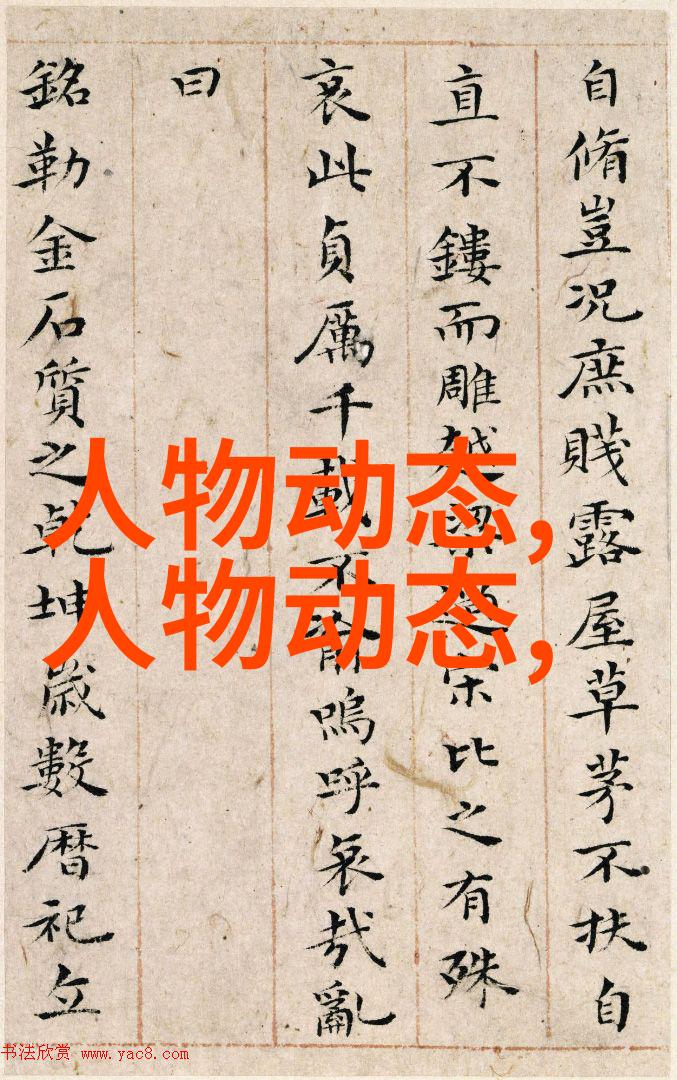 自脩豈况庶賤露屋草茅不扶自
直不鏤而雕越梁過宋比之有殊
哀此貞厲千載不渝嗚呼哀哉亂
曰
銘勒金石質之乾坤歲數暦祀立
人物动态,
人物动态,
书法欣赏 www.yac8.com